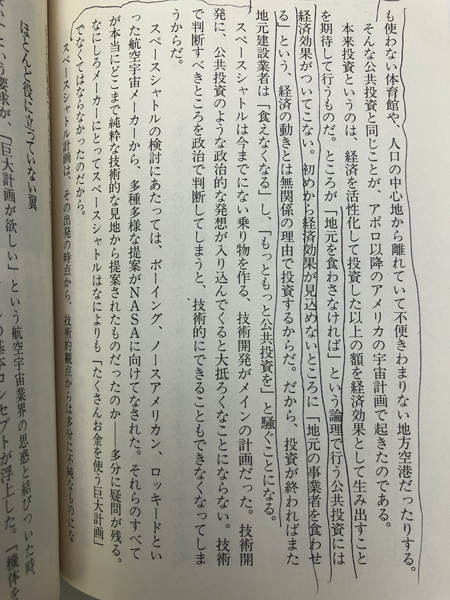 も使わない体育館や、人口の中心地から離れていて不便きわまりない地方空港だったりする。
そんな公共投資と同じことが、アポロ以降のアメリカの宇宙計画で起きたのである。
本来投資というのは、経済を活性化して投資した以上の額を経済効果として生み出すこと
を期待して行うものだ。ところが「地元を食わさなければ」という論理で行う公共投資には
経済効果がついてこない。初めから経済効果が見込めないところに「地元の事業者を食わせ
る」という、経済の動きとは無関係の理由で投資するからだ。だから、投資が終わればまた
地元建設業者は「食えなくなる」し、「もっともっと公共投資を」と騒ぐことになる。
スペースシャトルは今までにない乗り物を作る、技術開発がメインの計画だった。技術開
発に、公共投資のような政治的な発想が入り込んでくると大抵ろくなことにならない。技術
で判断すべきところを政治で判断してしまうと、技術的にできることもできなくなってしま
うからだ。
スペースシャトルの検討にあたっては、ボーイング、ノースアメリカン、ロッキードとい
った航空宇宙メーカーから、多種多様な提案がNASAに向けてなされた。それらのすべて
が本当にどこまで純粋な技術的な見地から提案されたものだったのか——多分に疑問が残る。
なにしろメーカーにとってスペースシャトルはなによりも「たくさんお金を使う巨大計画」
でなくてはならなかったのだから。
スペースシャトル計画は、その出発の時点から、技術的観点からは多分に不純なものにな
ほとんど役に立っていない翼
という要求が、「巨大計画が欲しい」という航空宇宙業界の思惑と結びついた時、
基本コンセプトが浮上した。「機体を